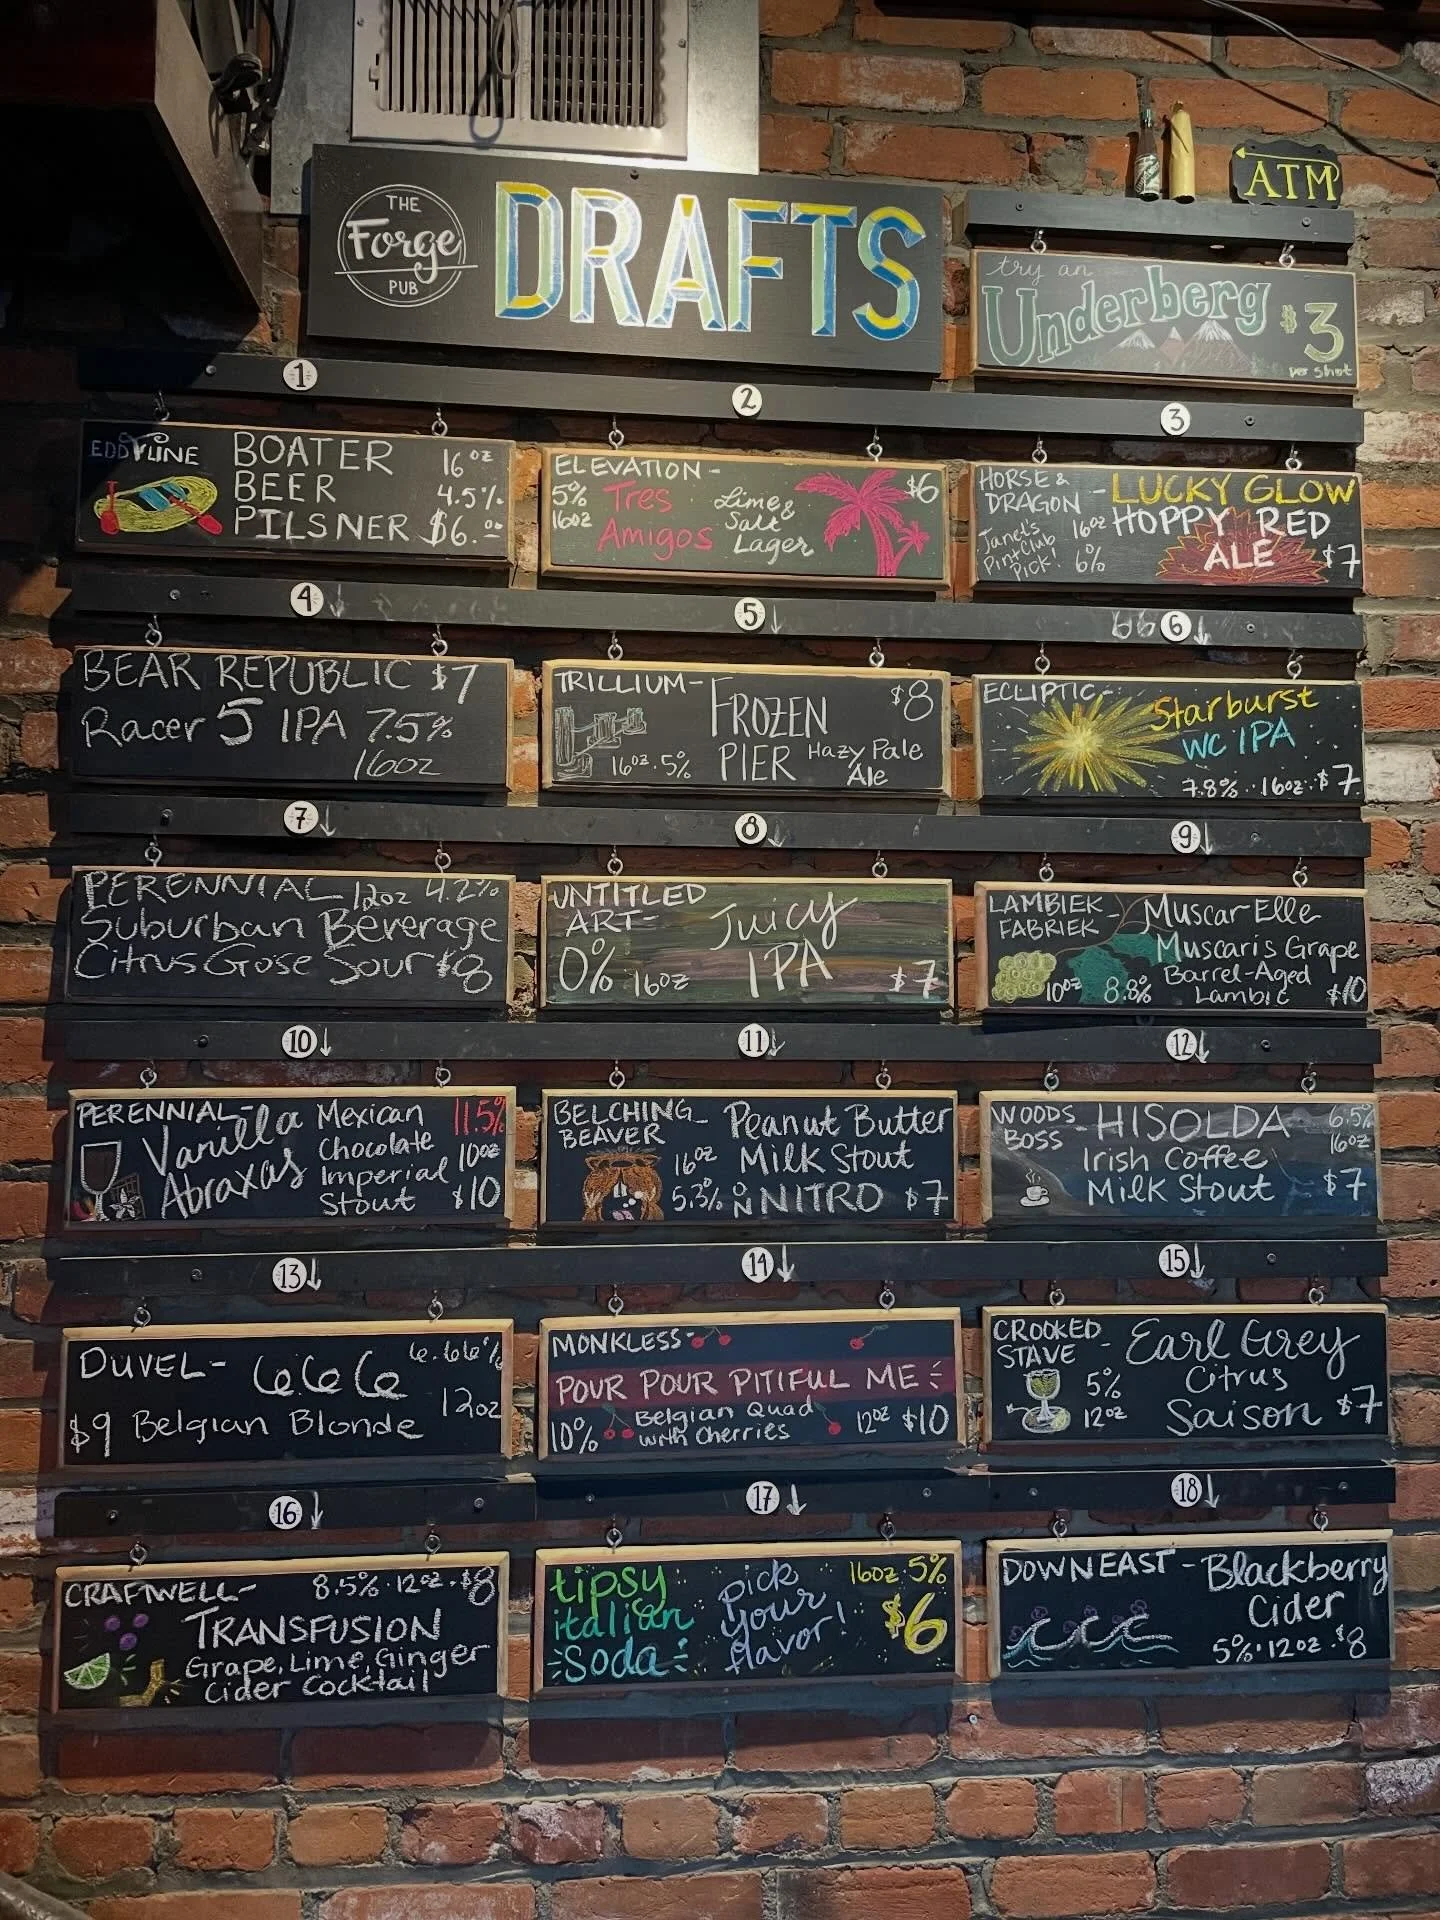 THE
Forge
PUB
DRAFTS
ATM
try an
Underberg $3
per shot
1
EDDYLINE
BOATER
BEER
PILSNER
16oz
4.5%
$6.00
2
ELEVATION-
5%
16oz
Tres
Amigos
Lime &
Salt
Lager
$6
3
HORSE &
DRAGON
- LUCKY GLOW
HOPPY RED
ALE
Janet's
Pint Club
Pick!
16oz
6%
$7
4
BEAR REPUBLIC $7
Racer 5 IPA 7.5%
16oz
5
TRILLIUM-
FROZEN
PIER Hazy Pale
Ale
$8
16oz · 5%
66 6
ECLIPTIC-
Starburst
WC IPA
7.8% · 16oz · $7
7
PERENNIAL 12oz 4.2%
Suburban Beverage
Citrus Gose Sour $8
8
UNTITLED
ART-
Juicy
IPA
0% 16oz
$7
9
LAMBIEK
FABRIEK
- Muscar Elle
Muscaris Grape
Barrel-Aged
Lambic
10oz 8.8%
$10
10
PERENNIAL-
Vanilla
Abraxas
Mexican
Chocolate
Imperial
Stout
11.5%
10oz
$10
11
BELCHING
BEAVER
- Peanut Butter
Milk Stout
on NITRO $7
16oz
5.3%
12
WOODS
BOSS
- HISOLDA
Irish Coffee
Milk Stout
6.5%
16oz
$7
13
DUVEL- 666 6.66%
12oz
$9 Belgian Blonde
14
MONKLESS-
POUR POUR PITIFUL ME
10% Belgian Quad
with Cherries
12oz $10
15
CROOKED
STAVE
- Earl Grey
Citrus
Saison $7
5%
12oz
16
CRAFTWELL- 8.5% · 12oz · $8
TRANSFUSION
Grape, Lime, Ginger
Cider Cocktail
17
tipsy
italian
Soda
pick
your
flavor!
16oz 5%
$6
18
DOWNEAST - Blackberry
Cider
5% · 12oz · $8